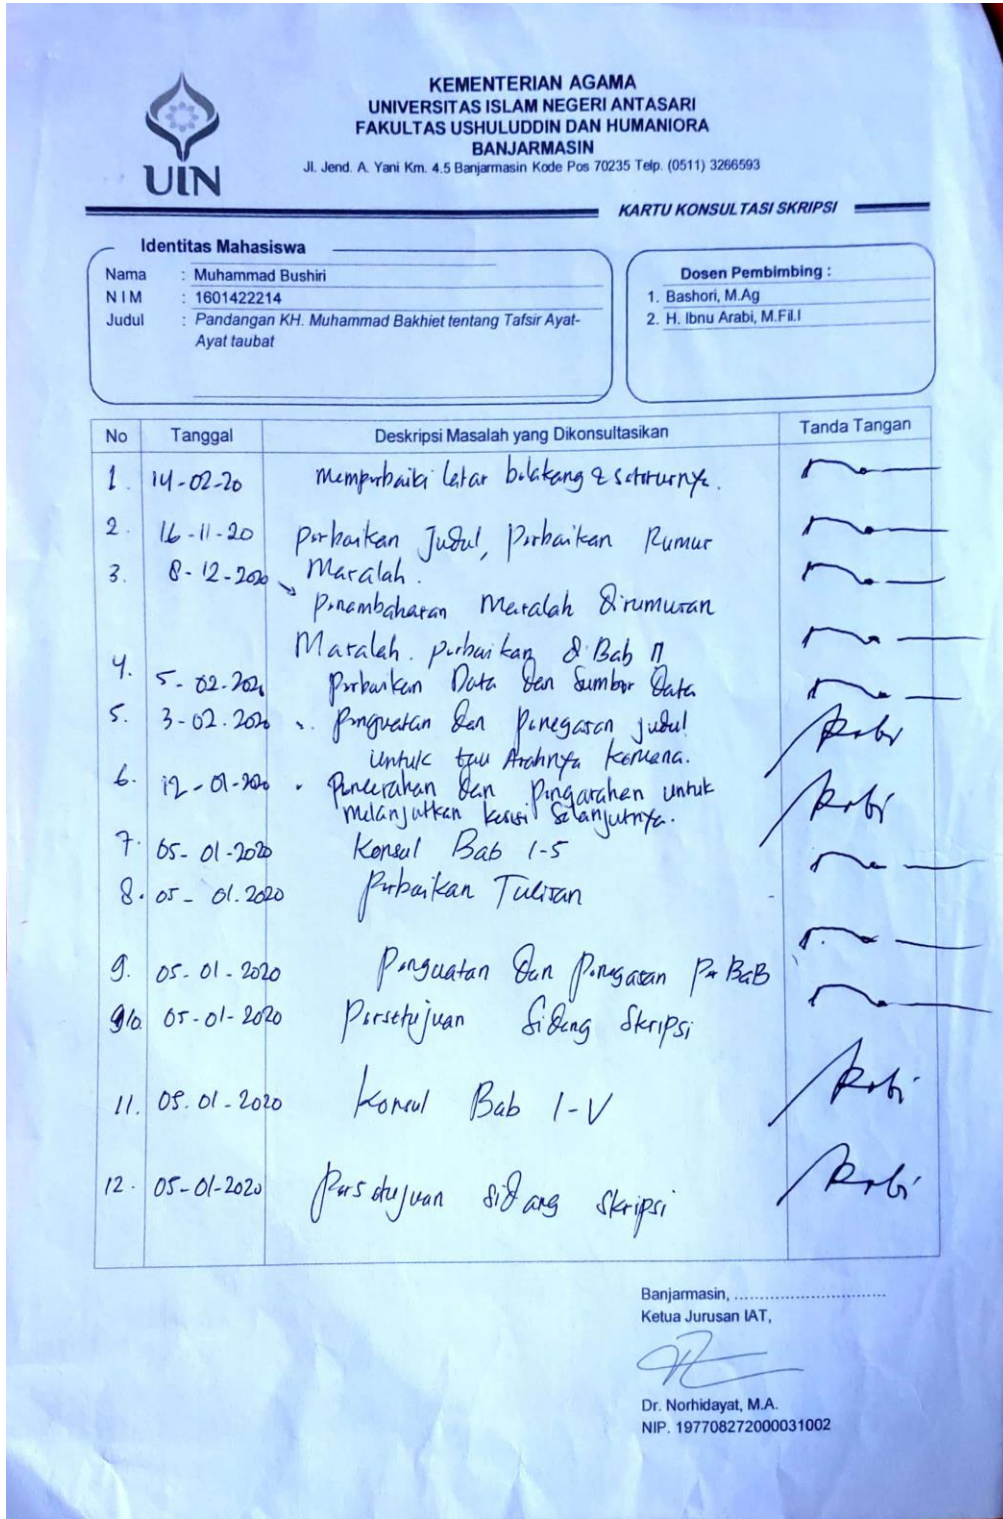 UIN
KEMENTERIAN AGAMA
UNIVERSITAS ISLAM NEGERI ANTASARI
FAKULTAS USHULUDDIN DAN HUMANIORA
BANJARMASIN
Jl. Jend. A. Yani Km. 4.5 Banjarmasin Kode Pos 70235 Telp. (0511) 3266593
KARTU KONSULTASI SKRIPSI
Identitas Mahasiswa
Nama : Muhammad Bushiri
N I M : 1601422214
Judul : Pandangan KH. Muhammad Bakhiet tentang Tafsir Ayat-
Ayat taubat
Dosen Pembimbing :
1. Bashori, M.Ag
2. H. Ibnu Arabi, M.Fil.I
No Tanggal Deskripsi Masalah yang Dikonsultasikan Tanda Tangan
1. 14-02-20 Memperbaiki latar belakang & seterusnya.
2. 16-11-20 Perbaikan Judul, Perbaikan Rumus
Masalah.
3. 8-12-2020 Penambahasan Masalah dirumusan
Masalah. perbaikan di Bab II
4. 5-02-2020 Perbaikan Data dan Sumber Data
5. 3-02-2020 Penguatan dan Penegasan judul
untuk tau Arahnya kemana. Arabi
6. 12-01-2020 Pencerahan dan Pengarahan untuk
melanjutkan Selanjutnya. Arabi
7. 05-01-2020 Konsul Bab 1-5
8. 05-01.2020 Perbaikan Tulisan
9. 05-01-2020 Penguatan dan Penegasan Per BaB
10. 05-01-2020 Persetujuan Sidang Skripsi
11. 05.01-2020 Konsul Bab I-V Arabi
12. 05-01-2020 Persetujuan sidang skripsi Arabi
Banjarmasin, ...............................
Ketua Jurusan IAT,
Dr. Norhidayat, M.A.
NIP. 197708272000031002